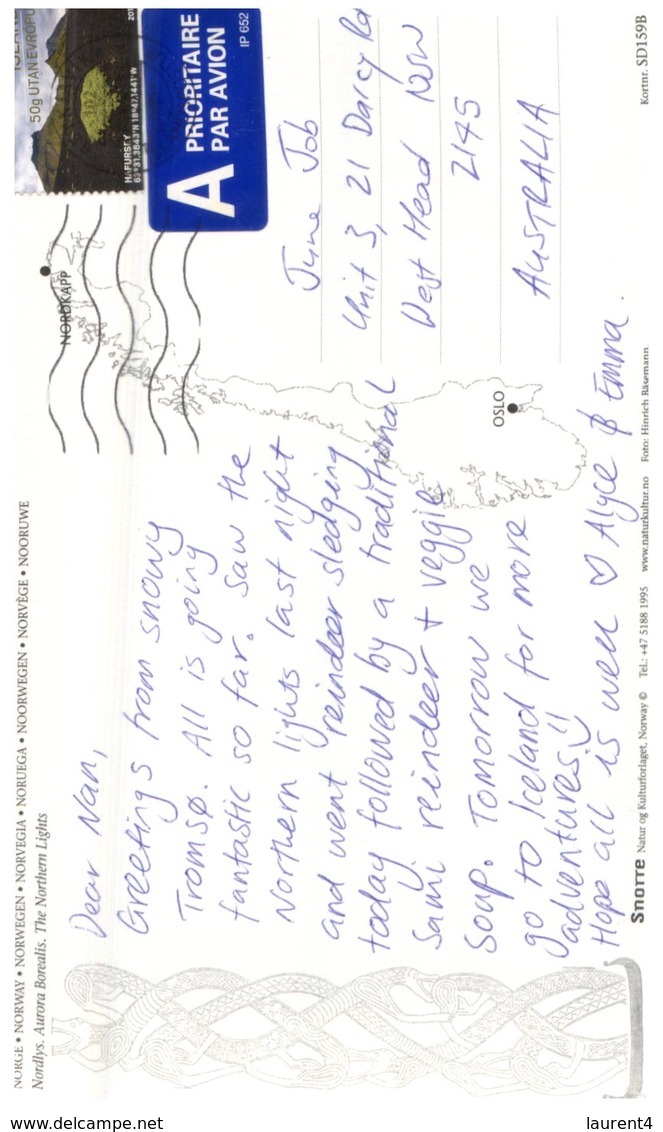 NORGE • NORWAY • NORWEGEN • NORVEGIA • NORUEGA • NOORWEGEN • NORVÈGE • NOORUWE
Nordlys. Aurora Borealis. The Northern Lights
Dear Nan,
Greetings from snowy
Tromsø. All is going
fantastic so far. Saw the
Northern lights last night
and went reindeer sledging
today followed by a traditional
Sami reindeer + veggie
soup. Tomorrow we
go to Iceland for more
adventures
Hope all is well ♡ Alyce & Emma.
Snorre Natur og Kulturforlaget, Norway © Tel.: +47 5188 1995 www.naturkultur.no Foto: Hinrich Bäsemann
Kortnr. SD159B
50g UTAN EVRÓPU
HAFURSEY
A PRIORITAIRE
PAR AVION
IP 652
NORDKAPP
OSLO
June Job
Unit 3, 21 Darcy Rd
West Head NSW
2145
AUSTRALIA
www.delcampe.net
laurent4